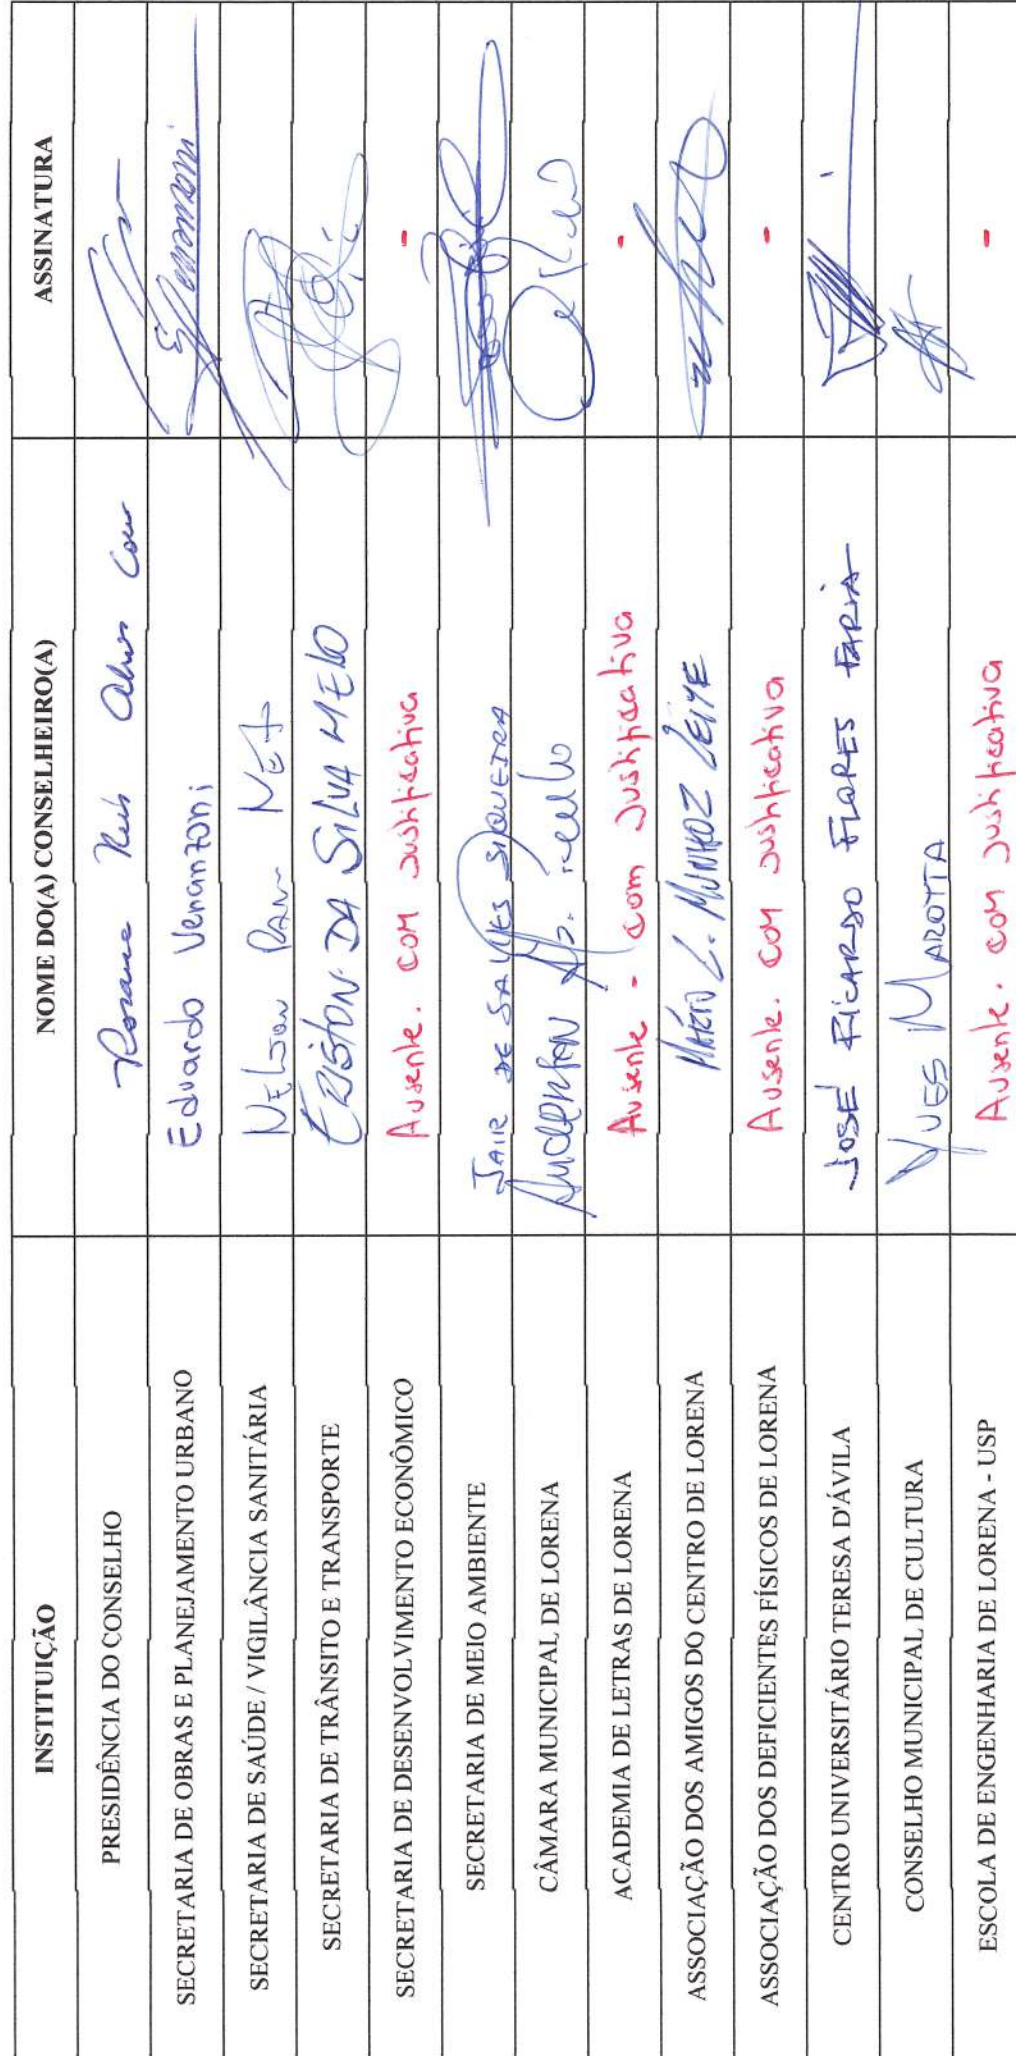 INSTITUIÇÃO NOME DO(A) CONSELHEIRO(A) ASSINATURA
PRESIDÊNCIA DO CONSELHO Rosane Reis Alves
SECRETARIA DE OBRAS E PLANEJAMENTO URBANO Eduardo Venanzoni
SECRETARIA DE SAÚDE / VIGILÂNCIA SANITÁRIA Nelson
SECRETARIA DE TRÂNSITO E TRANSPORTE DA SILVA MELO
SECRETARIA DE DESENVOLVIMENTO ECONÔMICO Ausente. com justificativa -
SECRETARIA DE MEIO AMBIENTE JAIR DE SALLES SIQUEIRA
CÂMARA MUNICIPAL DE LORENA Anderson Ap.
ACADEMIA DE LETRAS DE LORENA Ausente - com justificativa -
ASSOCIAÇÃO DOS AMIGOS DO CENTRO DE LORENA MÁRIO L. MUNHOZ LEITE
ASSOCIAÇÃO DOS DEFICIENTES FÍSICOS DE LORENA Ausente. com justificativa -
CENTRO UNIVERSITÁRIO TERESA D'ÁVILA JOSÉ RICARDO FLORES FARIA
CONSELHO MUNICIPAL DE CULTURA YVES MAROTTA
ESCOLA DE ENGENHARIA DE LORENA - USP Ausente. com justificativa -